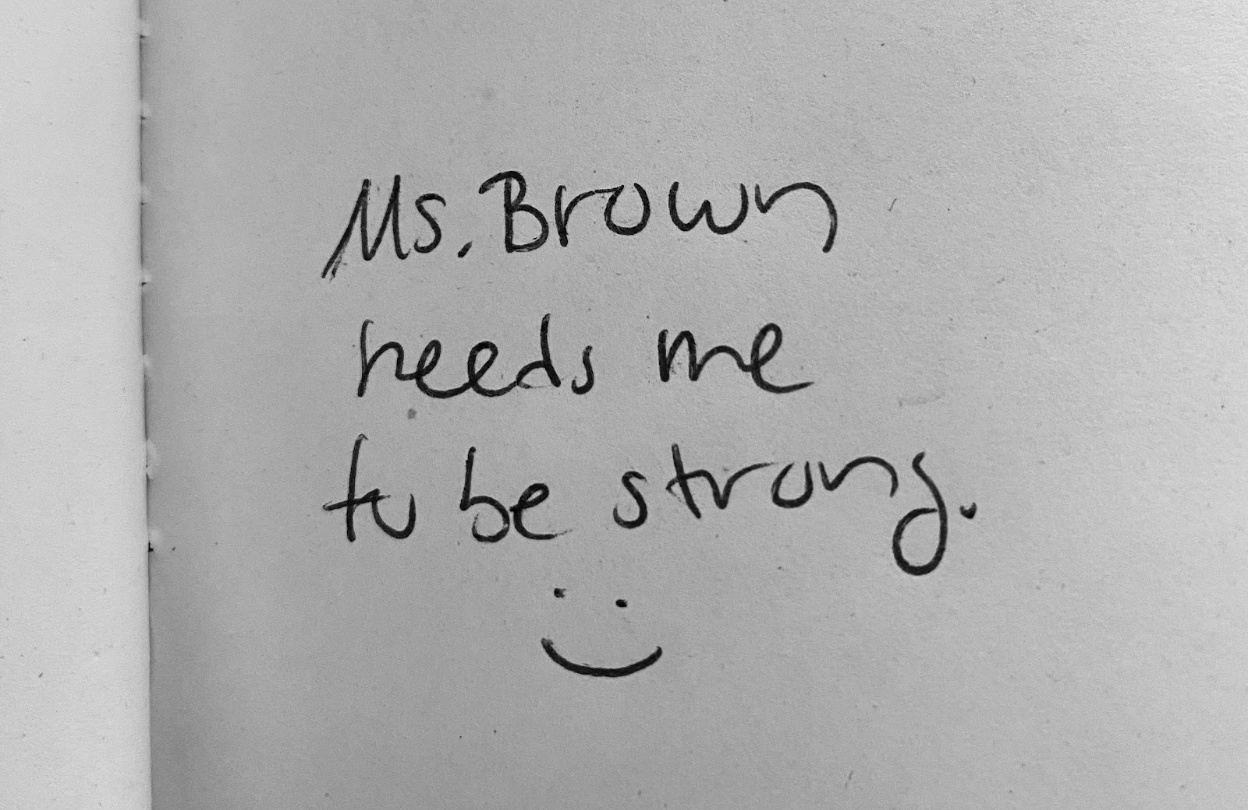 Ms. Brown
needs me
to be strong.